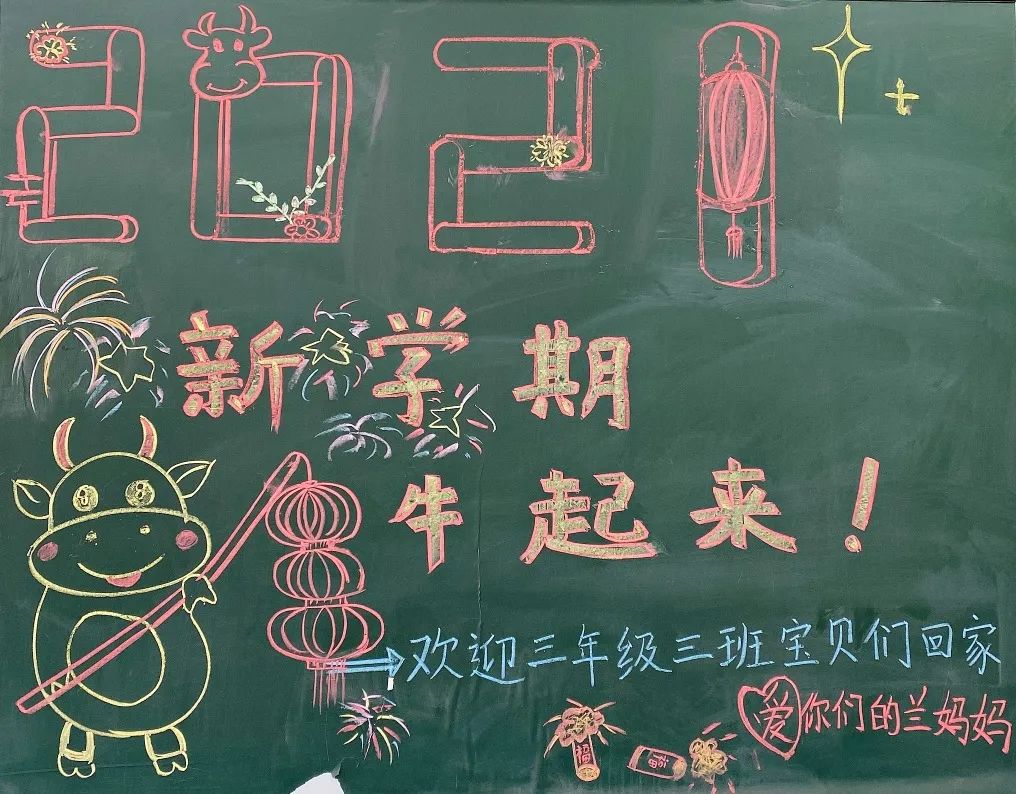 2021
新学期
牛起来！
欢迎三年级三班宝贝们回家
爱你们的兰妈妈
福